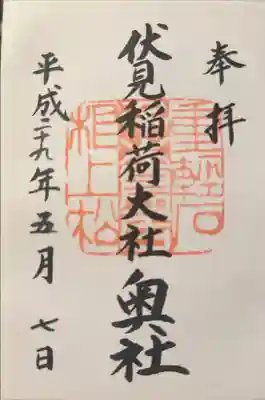 奉拝
伏見稲荷大社奥社
平成二十九年五月七日